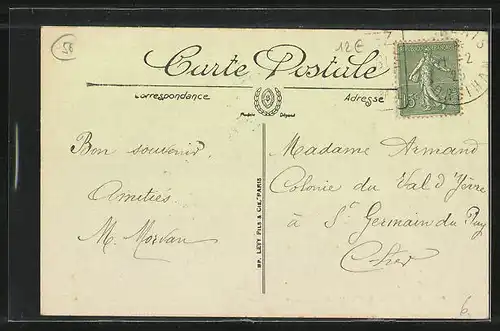 56
12€
Carte Postale
Correspondance
Adresse
Modèle Déposé
15
PARIS
Bon souvenir.
Amitiés
M. Morvan
LEVY FILS & CIE, PARIS
Madame Armand
Colonie du Val d'Yèvre
à St Germain du Puy
Cher
6.